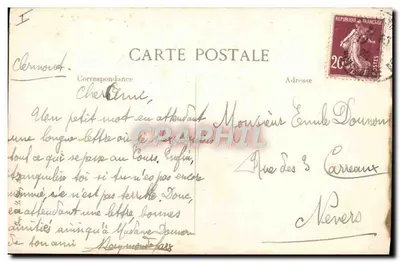 I
RÉPUBLIQUE FRANÇAISE
POSTES
20
CARTE POSTALE
Clermont
Correspondance
Adresse
Cher
Un petit mot en attendant
une longue lettre où
tout ce qui se passe au Cours. Enfin,
tranquilise toi si tu n'es pas encore
nommé, ce n'est pas terrible. Donc,
en attendant une lettre, bonnes
amitiés ainsi qu'à Madame
de ton ami
CPARAMA
Monsieur Emile
Rue des 3 Carreaux
Nevers